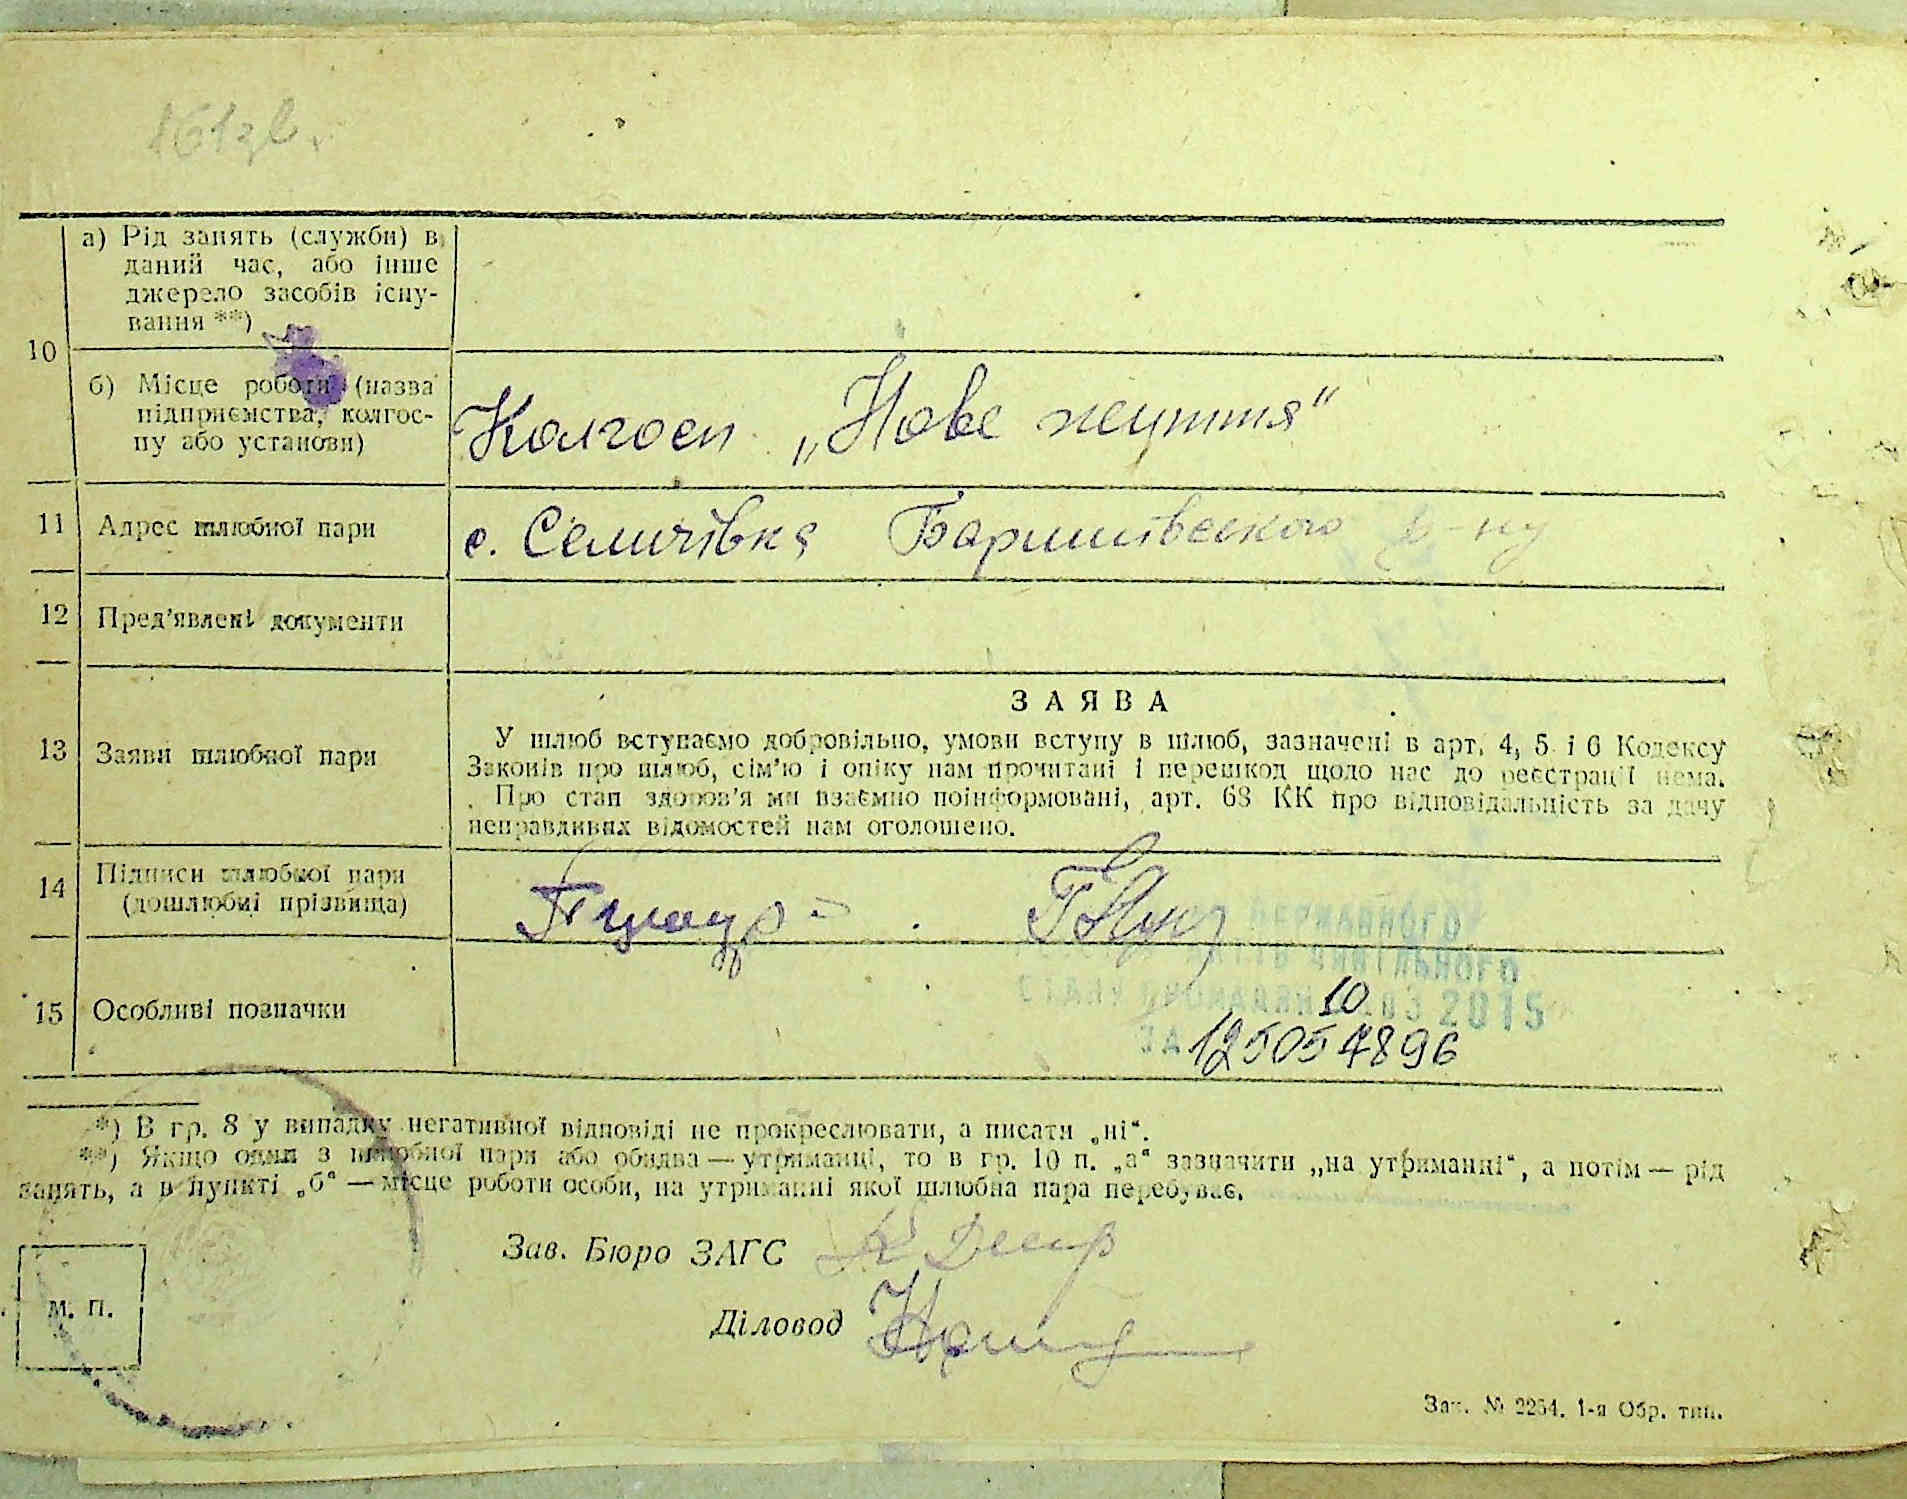 161 зв.
10
а) Рід занять (служби) в
даний час, або інше
джерело засобів існу-
вання **)
б) Місце роботи (назва
підприємства, колгос-
пу або установи)
Колгосп „Нове життя“
11 Адрес шлюбної пари
с. Селичівка Баришівського р-ну
12 Пред'явлені документи
13 Заяви шлюбної пари
ЗАЯВА
У шлюб вступаємо добровільно, умови вступу в шлюб, зазначені в арт. 4, 5 і 6 Кодексу
Законів про шлюб, сім'ю і опіку нам прочитані і перешкод щодо нас до реєстрації нема.
Про стан здоров'я ми взаємно поінформовані, арт. 68 КК про відповідальність за дачу
неправдивих відомостей нам оголошено.
14 Підписи шлюбної пари
(дошлюбні прізвища)
ДЕРЖАВНОГО
АКТІВ ЦИВІЛЬНОГО
СТАНУ ГРОМАДЯН 10 03 2015
ЗА 125057896
15 Особливі позначки
*) В гр. 8 у випадку негативної відповіді не прокреслювати, а писати „ні“.
**) Якщо один з шлюбної пари або обидва — утриманці, то в гр. 10 п. „а“ зазначити „на утриманні“, а потім — рід
занять, а в пункті „б“ — місце роботи особи, на утриманні якої шлюбна пара перебуває.
Зав. Бюро ЗАГС
Діловод
м. п.
Зак. № 2264. 1-а Обр. тип.